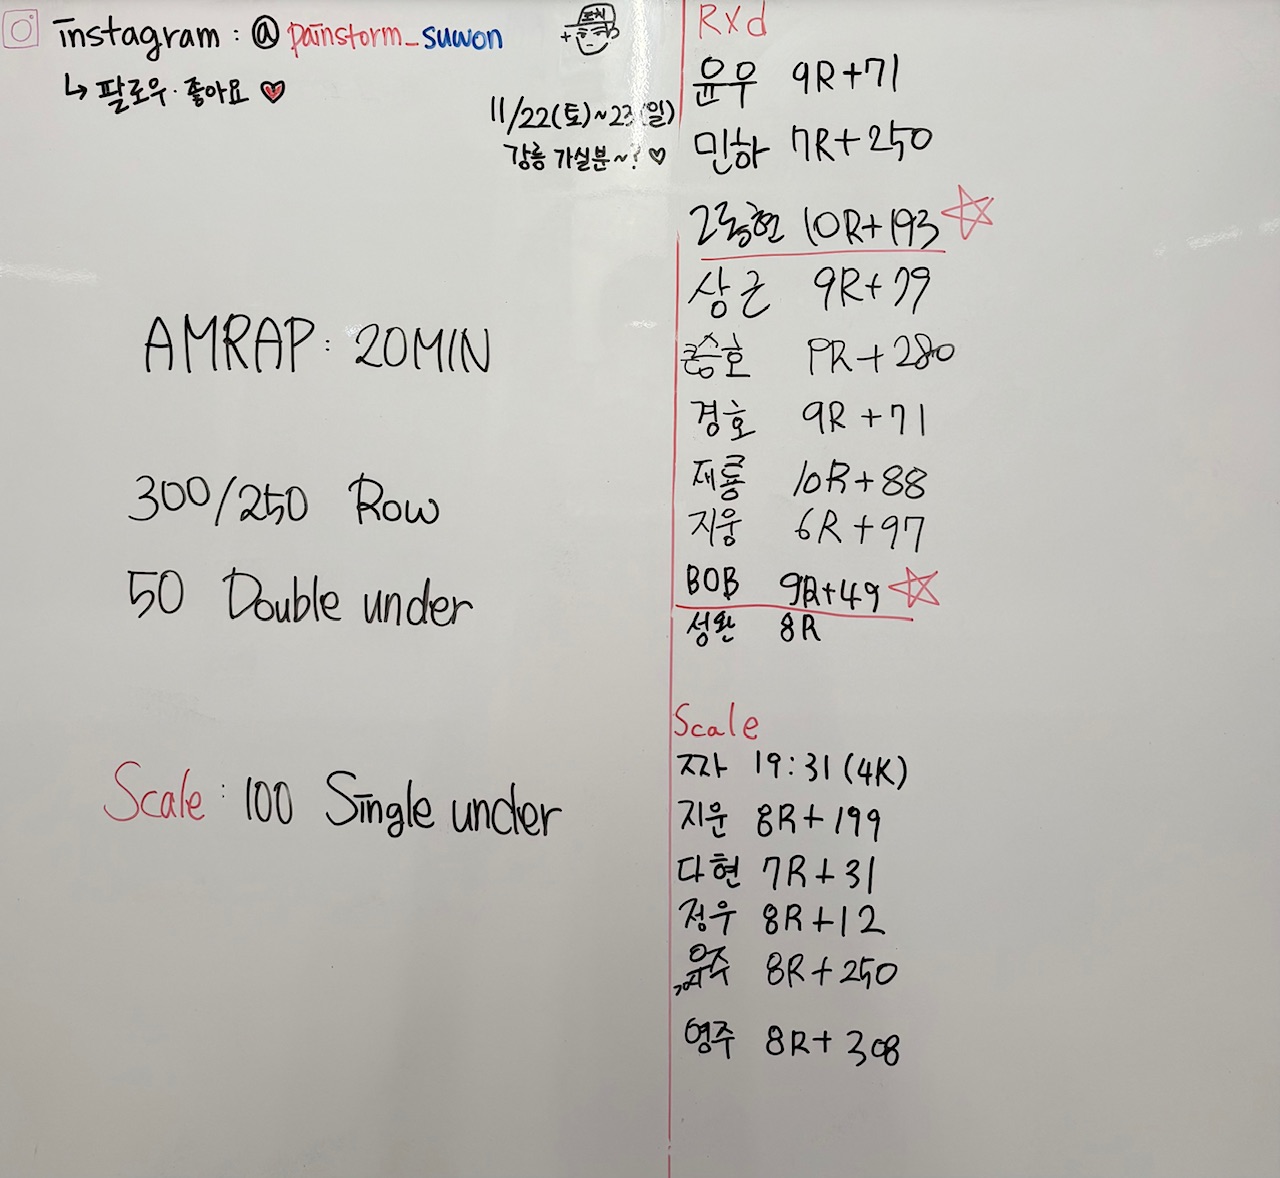 instagram : @ painstorm_suwon
↳ 팔로우·좋아요 ♥
11/22(토)~23(일)
강릉 가실분~? ♡
AMRAP : 20MIN
300/250 Row
50 Double under
Scale : 100 Single under
Rxd
윤우 9R+71
민하 7R+250
고동현 10R+193
상근 9R+79
큰승호 9R+280
경호 9R+71
재룡 10R+88
지웅 6R+97
BOB 9R+49
성환 8R
Scale
짜 19:31(4K)
지운 8R+199
다현 7R+31
정우 8R+12
8R+250
영주 8R+308